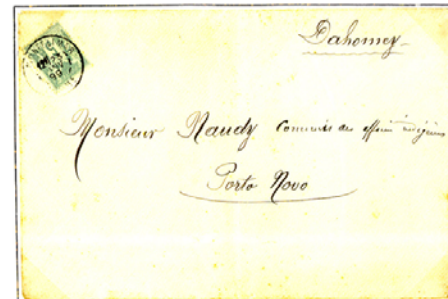 Dahomey
Monsieur Naudy Commis des affaires indigènes
Porto Novo
99